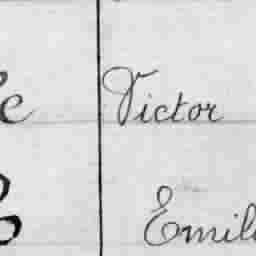 Victor
Emil